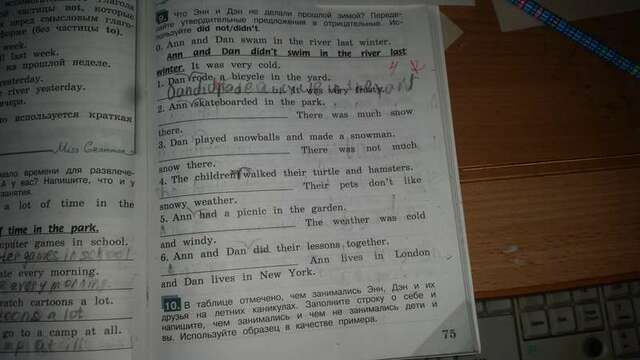 глагола
частицы not, которые
перед смысловым глаго-
форме (без частицы to).
week.
last week.
на прошлой неделе.
yesterday.
river yesterday.
вчера.
используется краткая
Miss Grammar
мало времени для развлече-
А у вас? Напишите, что и у
занятия.
a lot of time in the
of time in the park.
computer games in school.
games in school
late every morning.
every morning
watch cartoons a lot.
cartoons a lot
go to a camp at all.
camp at all
9. Что Энн и Дэн не делали прошлой зимой? Переде-
лайте утвердительные предложения в отрицательные. Ис-
пользуйте did not/didn't.
0. Ann and Dan swam in the river last winter.
Ann and Dan didn't swim in the river last
winter. It was very cold.
1. Dan rode a bicycle in the yard.
It was very frosty.
2. Ann skateboarded in the park.
There was much snow
there.
3. Dan played snowballs and made a snowman.
There was not much
snow there.
4. The children walked their turtle and hamsters.
Their pets don't like
snowy weather.
5. Ann had a picnic in the garden.
The weather was cold
and windy.
6. Ann and Dan did their lessons together.
Ann lives in London
and Dan lives in New York.
10. В таблице отмечено, чем занимались Энн, Дэн и их
друзья на летних каникулах. Заполните строку о себе и
напишите, чем занимались и чем не занимались дети и
вы. Используйте образец в качестве примера.
75